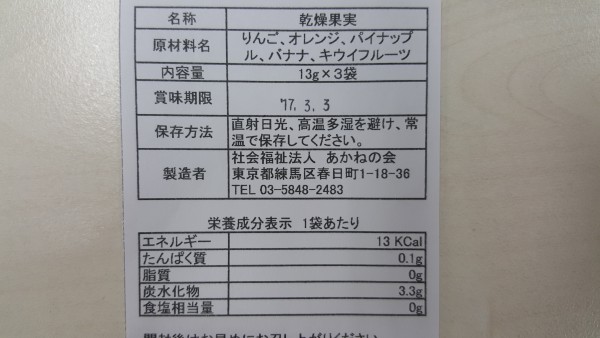 名称 乾燥果実
原材料名 りんご、オレンジ、パイナップ
ル、バナナ、キウイフルーツ
内容量 13g×3袋
賞味期限 '17. 3. 3
保存方法 直射日光、高温多湿を避け、常
温で保存してください。
製造者 社会福祉法人 あかねの会
東京都練馬区春日町1-18-36
TEL 03-5848-2483
栄養成分表示 1袋あたり
エネルギー 13 KCal
たんぱく質 0.1g
脂質 0g
炭水化物 3.3g
食塩相当量 0g
開封後はお早めにお召し上がりください